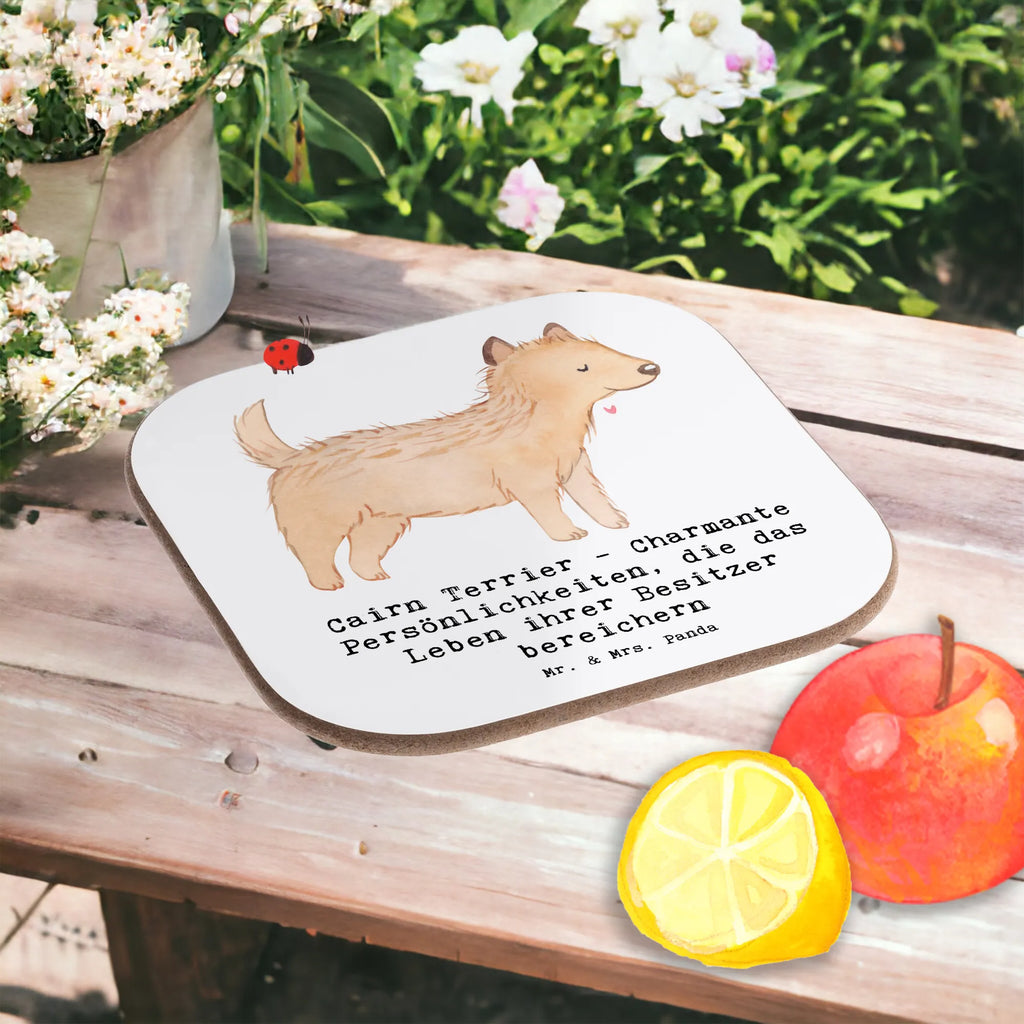 Cairn Terrier - Charmante
Persönlichkeiten, die das
Leben ihrer Besitzer
bereichern
Mr. & Mrs. Panda